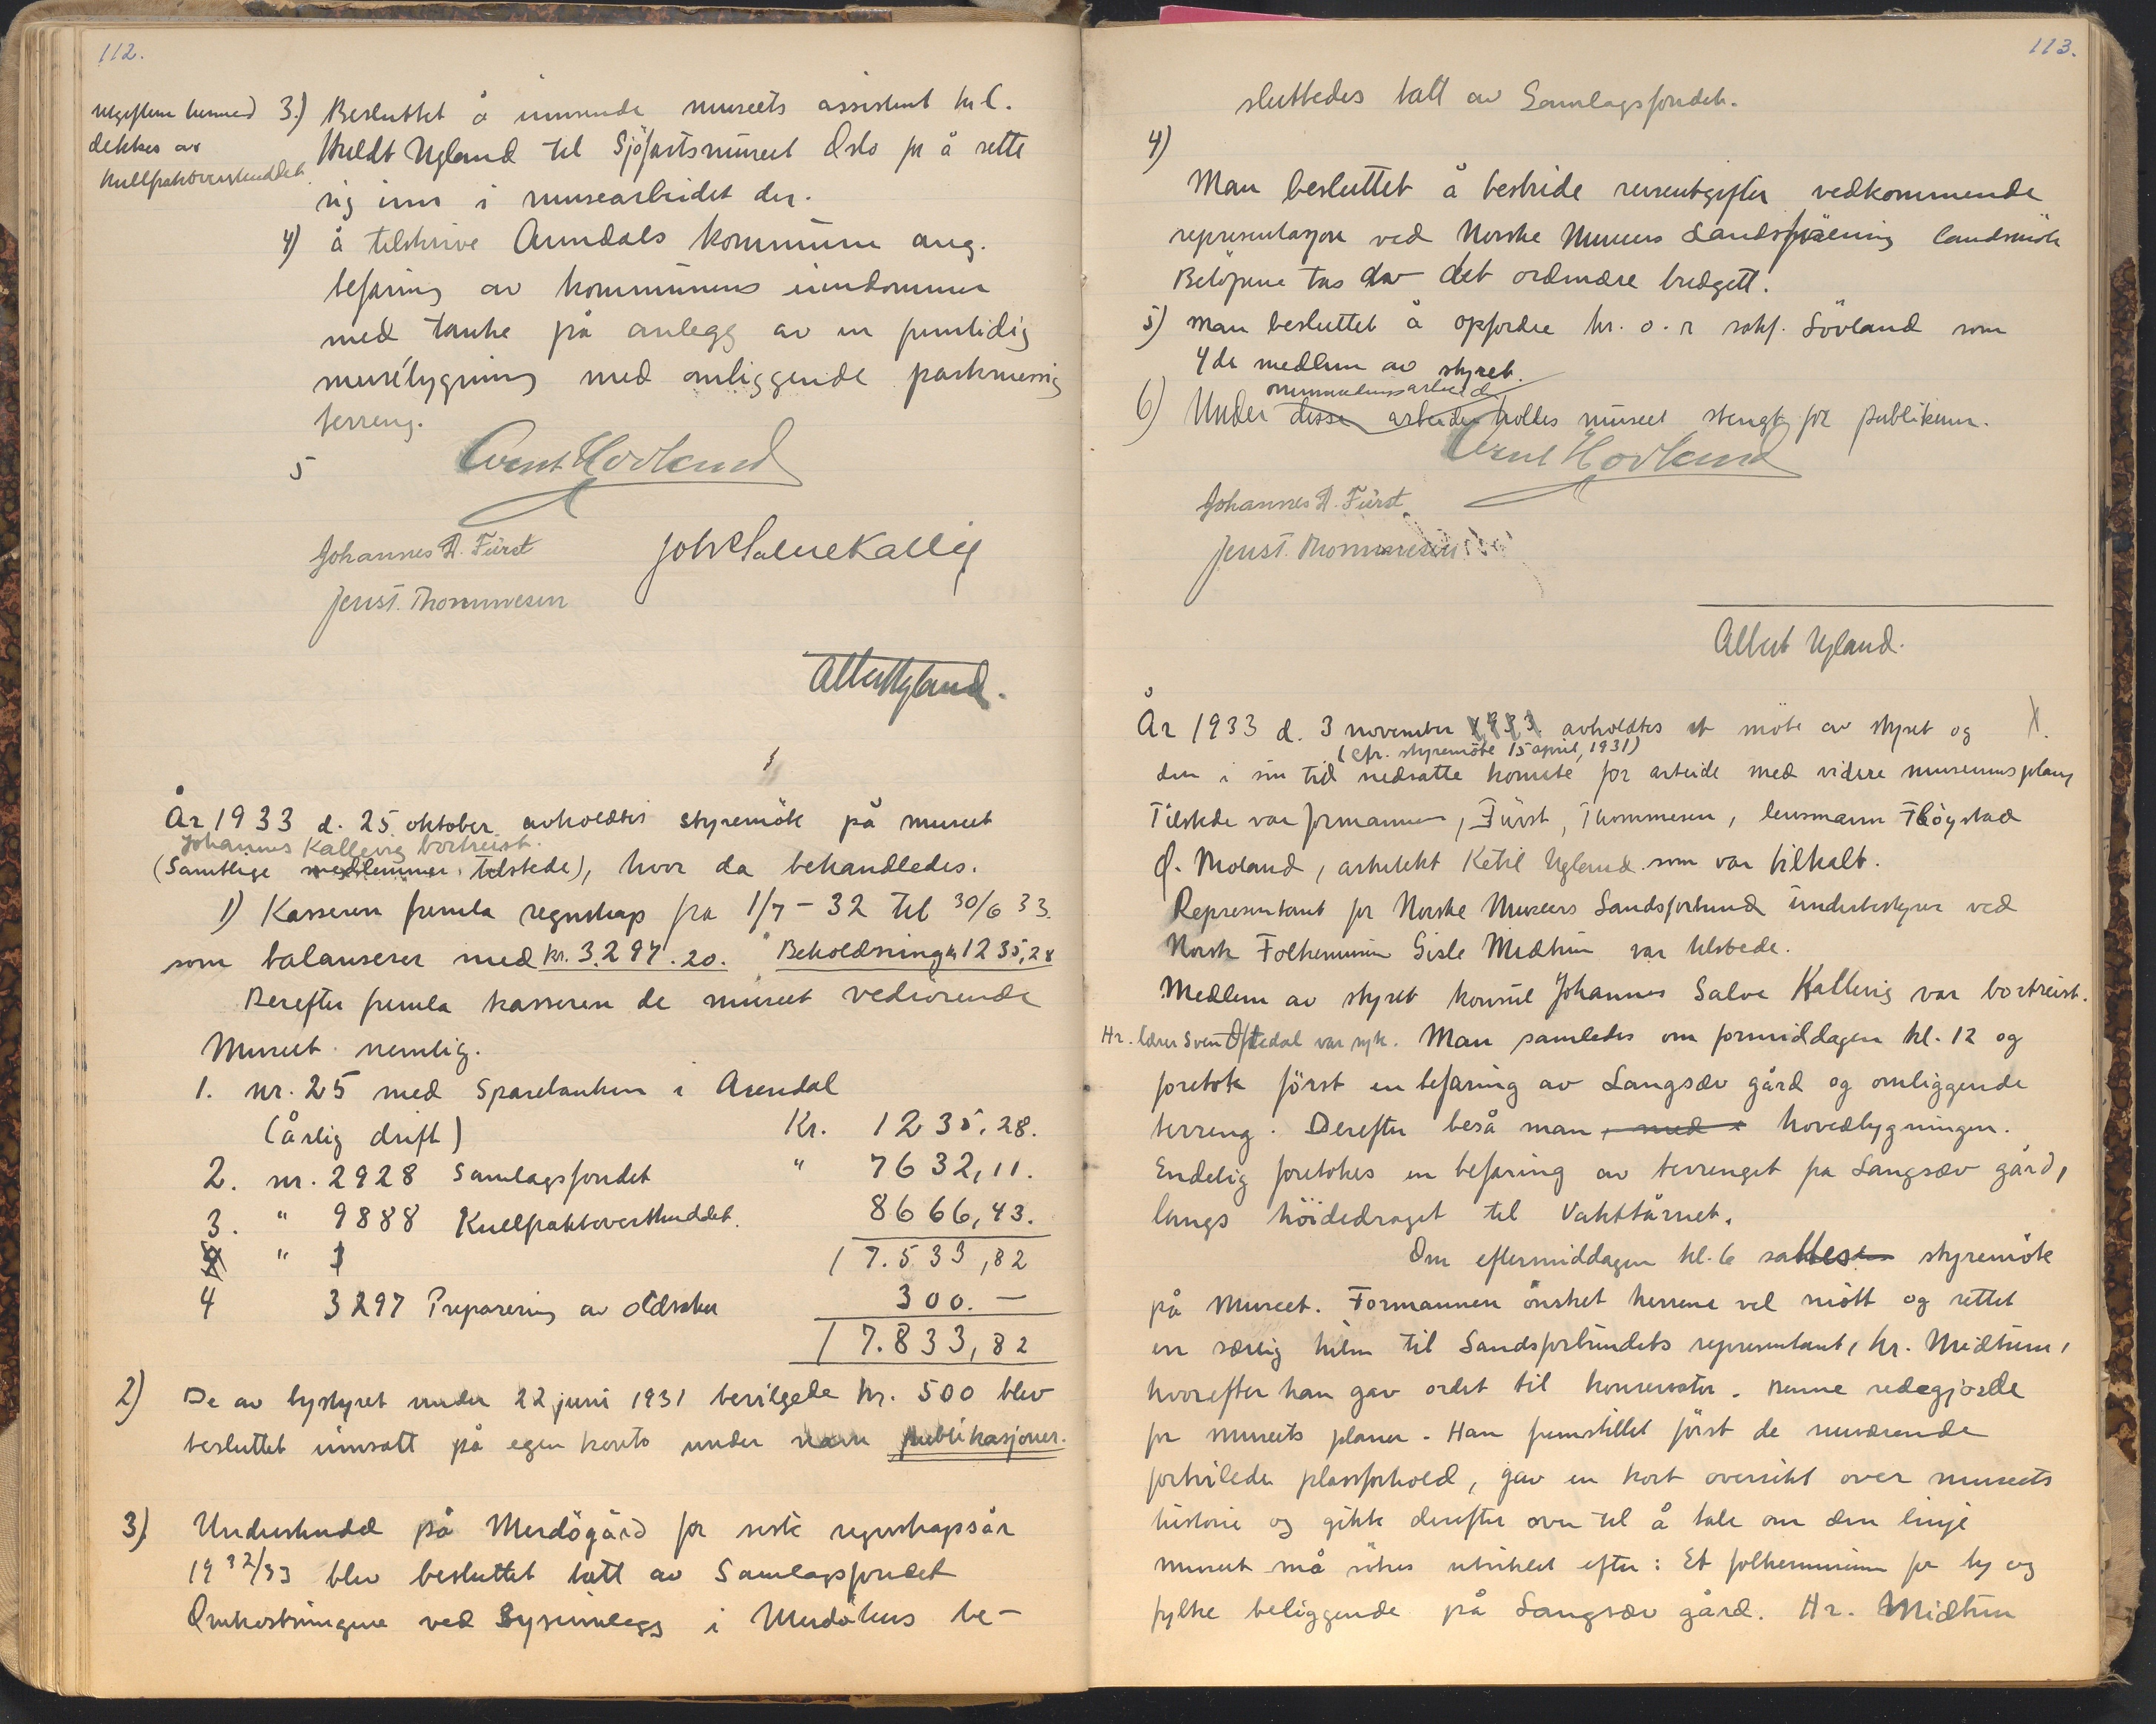 112.
Utgiftene hermed
dekkes av
Kullpaktoverskuddet.
3.) Besluttet å innsende museets assistent frk.
Huldt Ugland til Sjöfartsmuseet Oslo for å sette
sig inn i musearbeidet der.
4) å tilskrive Arendals kommune ang.
befaring av kommunens eiendommer
med tanke på anlegg av en fremtidig
musébygning med omliggende parkmessig
terreng.
5
Arent Hovland
Johannes A. Fürst
Joh. Salve Kallevig
Jens T. Thommesen
Albert Ugland.
År 1933 d. 25 oktober avholdtes styremöte på museet
Johannes Kallevig bortreist.
(Samtlige medlemmer tilstede), hvor da behandledes.
1) Kasseren fremla regnskap fra 1/7 - 32 til 30/6 33.
som balanserer med kr. 3.297.20. Beholdning kr 1235,28
Derefter fremla kasseren de museet vedrörende
Museet nemlig.
1. nr. 25 med Sparebanken i Arendal
(årlig drift) Kr. 1235,28.
2. nr. 2928 Samlagsfondet " 7632,11.
3. " 9888 Kullpaktoverskuddet. 8666,43.
" 17.533,82
4 3297 Preparering av oldsaker 300.-
17.833,82
2) De av bystyret under 22 juni 1931 bevilgede kr. 500 blev
besluttet innsatt på egen konto under navn publikasjoner.
3) Underskudd på Merdögård for siste regnskapsår
1932/33 blev besluttet tatt av Samlagsfondet
Omkostningene ved lysinnlegg i Merdöhus be-
113.
sluttedes tatt av Samlagsfondet.
4)
Man besluttet å bestride reiseutgifter vedkommende
representasjon ved Norske Museers Landsforening landsmöte
Belöpene tas av det ordinære budgett.
5) Man besluttet å opfordre hr. o.r sakf. Sövland som
4de medlem av styret.
ominnredningsarbeid
6) Under disse arbeider holdes museet stengt for publikum.
Arent Hovland
Johannes A. Fürst
Jens T. Thommesen
Albert Ugland.
År 1933 d. 3 november 1933 avholdtes et möte av styret og
(cfr. styremöte 15 april, 1931)
den i sin tid nedsatte komité for arbeide med videre museumsplaner
Tilstede var formannen, Fürst, Thommesen, lensmann Flöystad
O. Moland, arkitekt Ketil Ugland som var tilkalt.
Representant for Norske Museers Landsforbund underbestyrer ved
Norsk Folkemuseum Gisle Midttun var tilstede.
Medlem av styret konsul Johannes Salve Kallevig var bortreist.
Hr. lærer Sven Oftedal var syk. Man samledes om formiddagen kl. 12 og
foretok först en befaring av Langsæv gård og omliggende
terreng. Derefter beså man, med hovedbygningen.
Endelig foretokes en befaring av terrenget fra Langsæv gård,
langs höidedraget til Vakttårnet.
Om eftermiddagen kl. 6 sattes styremöte
på Museet. Formannen önsket herrene vel mött og rettet
en særlig hilsen til Landsforbundets representant, hr. Midttun,
hvorefter han gav ordet til konservator. Denne redegjorde
for museets planer. Han fremstillet först de nuværende
fortvilede plassforhold, gav en kort oversikt over museets
historie og gikk derefter over til å tale om den linje
museet må sökes utviklet efter: Et folkemuseum for by og
fylke beliggende på Langsæv gård. Hr. Midttun